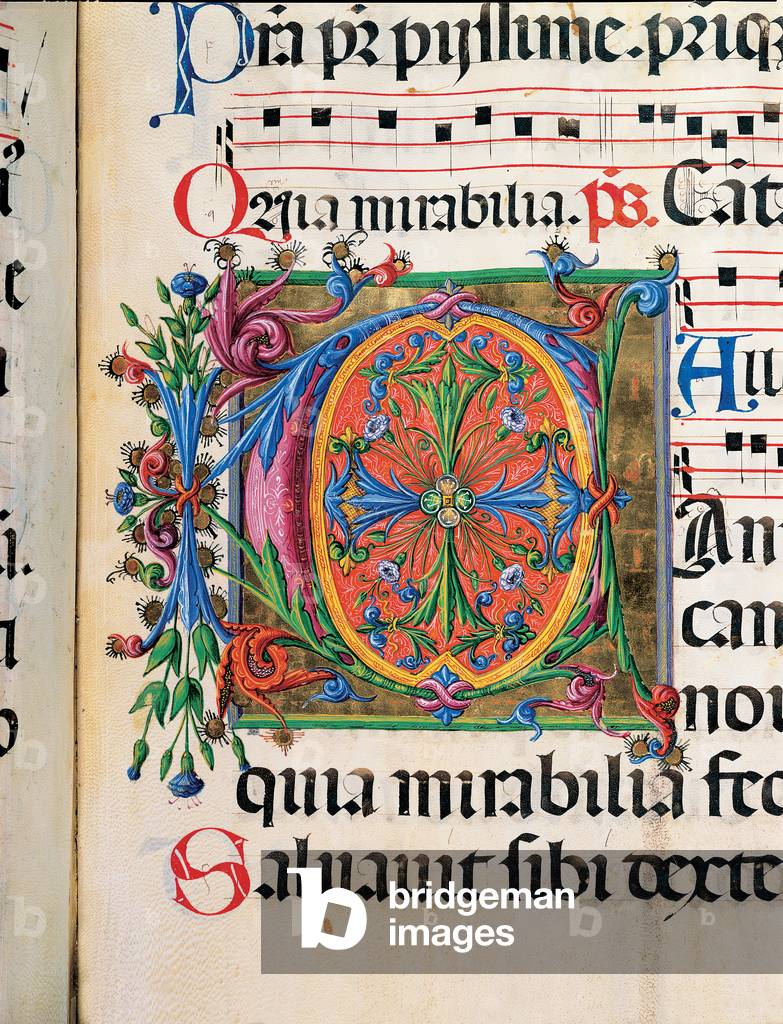 Pra pr pyssime. priq
Quia mirabilia. ps. Cāt
All
An
can
nou
quia mirabilia fec
Saluauit sibi dexte
bridgeman
images